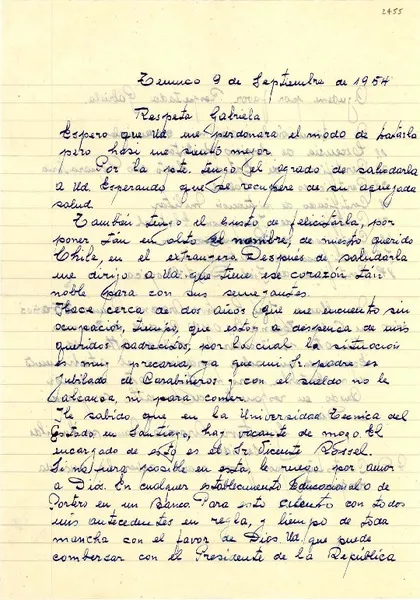 2455
Temuco 9 de Septiembre de 1954
Respeta Gabriela
Espero que Ud. me perdonara el modo de tratarla
pero hási me siento mejor.
Por la pte. tengo el agrado de saludarla
a Ud. Esperando que se recupere de su aquejada
salud.
También tengo el gusto de felicitarla, por
poner tán en alto el nombre, de nuestro querido
Chile, en el extrangero. Despues de saludarla
me dirijo a Ud. que tiene ese corazón tán
noble para con sus semejantes.
Hace cerca de dos años que me encuento sin
ocupación, tiempo, que estoy a despensa de mis
queridos padrecitos, por lo cual la situación
es muy precaria, ya que mi Sr. padre es
Jubilado de Carabineros y con el sueldo no le
alcanza, ni para comer.
He sabido que en la Universidad Tecnica del
Estado en Santiago, hay vacante de mozo. El
encargado de esto es el Sr. Vicente
Si no fuera posible en esta, le ruego por amor
a Dios. En cualquer establecimiento Educacional o de
Portero en un Banco. Para esto cuento con todos
mis antecedentes en regla, y limpio de toda
mancha con el favor de Dios. Ud. que puede
combersar con el Presidente de la República